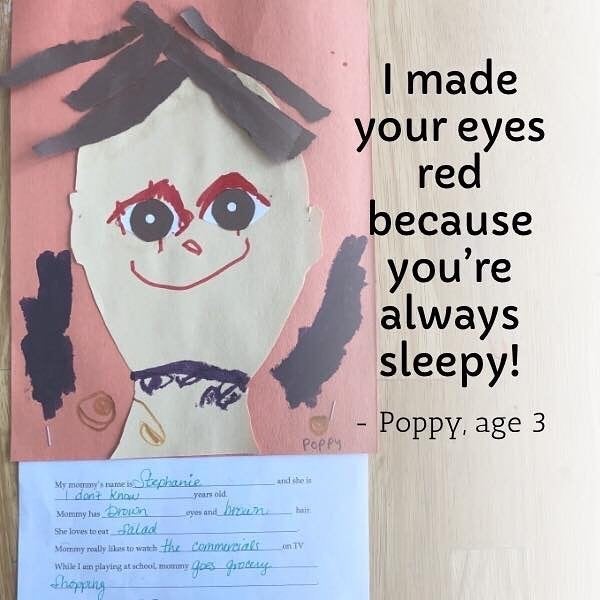 I made
your eyes
red
because
you're
always
sleepy!
- Poppy, age 3
POPPY
My mommy's name is Stephanie and she is
I don't know years old.
Mommy has brown eyes and brown hair.
She loves to eat salad
Mommy really likes to watch the commercials on TV
While I am playing at school, mommy goes grocery
shopping